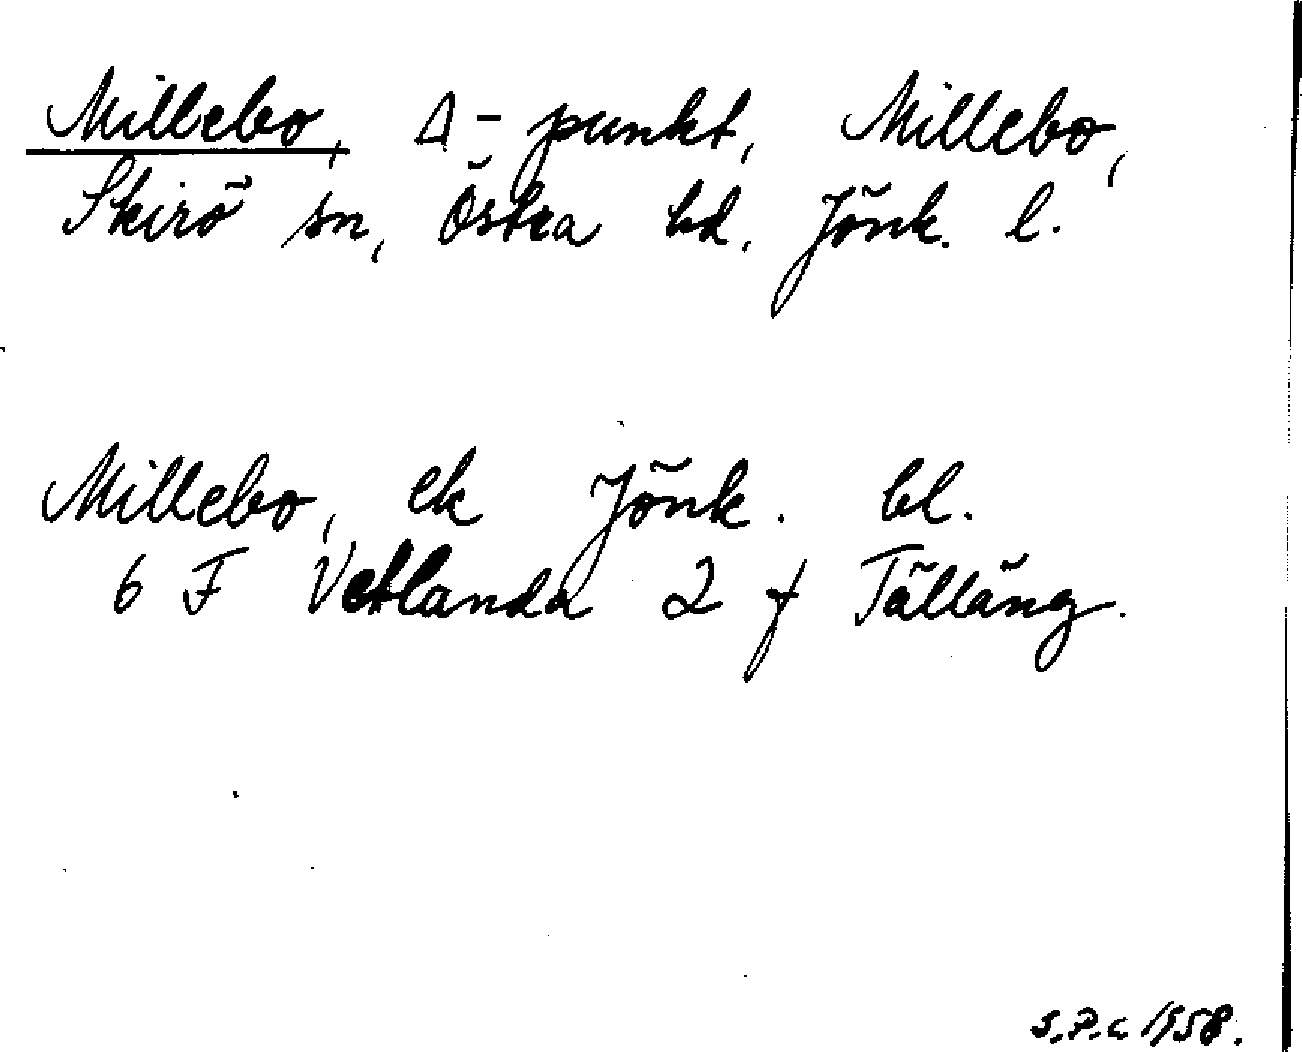 Millebo, Δ-punkt, Millebo,
Skirö sn, Östra hd. Jönk. l.
Millebo, ek Jönk. bl.
6 F Vetlanda 2 f Tälläng.
S.P.C. 1958.